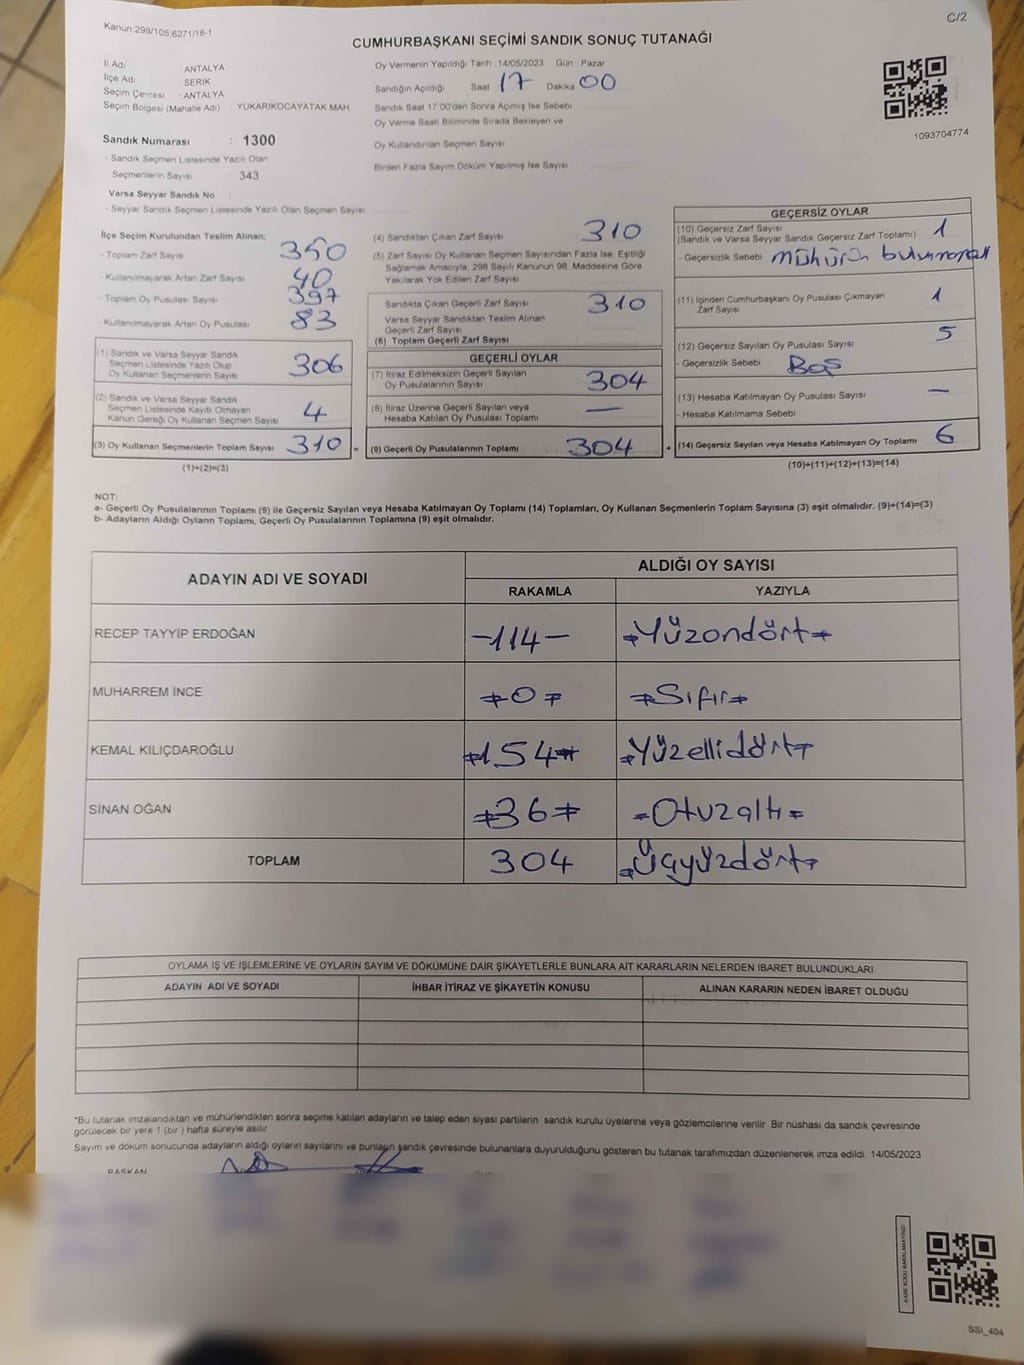 Kanun:298/105,6271/18-1
C/2
CUMHURBAŞKANI SEÇİMİ SANDIK SONUÇ TUTANAĞI
İl Adı ANTALYA
İlçe Adı SERİK
Seçim Çevresi : ANTALYA
Seçim Bölgesi (Mahalle Adı) YUKARIKOCAYATAK MAH
Oy Vermenin Yapıldığı Tarih 14/05/2023 Gün : Pazar
Sandığın Açıldığı Saat 17 Dakika 00
Sandık Saat 17:00'den Sonra Açımış İse Sebebi
Oy Verme Saati Bitiminde Sırada Bekleyen ve
Oy Kullandırılan Seçmen Sayısı
Birden Fazla Sayım Döküm Yapılmış İse Sayısı
1093704774
Sandık Numarası : 1300
- Sandık Seçmen Listesinde Yazılı Olan
Seçmenlerin Sayısı : 343
Varsa Seyyar Sandık No :
- Seyyar Sandık Seçmen Listesinde Yazılı Olan Seçmen Sayısı
İlçe Seçim Kurulundan Teslim Alınan:
- Toplam Zarf Sayısı 350
- Kullanılmayarak Artan Zarf Sayısı 40
- Toplam Oy Pusulası Sayısı 397
- Kullanılmayarak Artan Oy Pusulası 83
(1) Sandık ve Varsa Seyyar Sandık
Seçmen Listesinde Yazılı Olup
Oy Kullanan Seçmenlerin Sayısı 306
(2) Sandık ve Varsa Seyyar Sandık
Seçmen Listesinde Kayıtlı Olmayan
Kanun Gereği Oy Kullanan Seçmen Sayısı 4
(3) Oy Kullanan Seçmenlerin Toplam Sayısı 310 =
(1)+(2)=(3)
(4) Sandıktan Çıkan Zarf Sayısı 310
(5) Zarf Sayısı Oy Kullanan Seçmen Sayısından Fazla İse, Eşitliği
Sağlamak Amacıyla, 298 Sayılı Kanunun 98. Maddesine Göre
Yakılarak Yok Edilen Zarf Sayısı
Sandıkta Çıkan Geçerli Zarf Sayısı 310
Varsa Seyyar Sandıktan Teslim Alınan
Geçerli Zarf Sayısı
(6) Toplam Geçerli Zarf Sayısı
GEÇERLİ OYLAR
(7) İtiraz Edilmeksizin Geçerli Sayılan
Oy Pusulalarının Sayısı 304
(8) İtiraz Üzerine Geçerli Sayılan veya
Hesaba Katılan Oy Pusulası Toplamı —
(9) Geçerli Oy Pusulalarının Toplamı 304 +
GEÇERSİZ OYLAR
(10) Geçersiz Zarf Sayısı 1
(Sandık ve Varsa Seyyar Sandık Geçersiz Zarf Toplamı)
- Geçersizlik Sebebi mühürün
(11) İçinden Cumhurbaşkanı Oy Pusulası Çıkmayan 1
Zarf Sayısı
(12) Geçersiz Sayılan Oy Pusulası Sayısı 5
- Geçersizlik Sebebi Boş
(13) Hesaba Katılmayan Oy Sayısı —
- Hesaba Katılmama Sebebi
(14) Geçersiz Sayılan veya Hesaba Katılmayan Oy Toplamı 6
(10)+(11)+(12)+(13)=(14)
NOT:
a- Geçerli Oy Pusulalarının Toplamı (9) ile Geçersiz Sayılan veya Hesaba Katılmayan Oy Toplamı (14) Toplamları, Oy Kullanan Seçmenlerin Toplam Sayısına (3) eşit olmalıdır. (9)+(14)=(3)
b- Adayların Aldığı Oyların Toplamı, Geçerli Oy Pusulalarının Toplamına (9) eşit olmalıdır.
ADAYIN ADI VE SOYADI
ALDIĞI OY SAYISI
RAKAMLA YAZIYLA
RECEP TAYYİP ERDOĞAN -114- Yüzondört
MUHARREM İNCE 0 Sıfır
KEMAL KILIÇDAROĞLU 154 Yüzellidört
SİNAN OĞAN 36 Otuzaltı
TOPLAM 304 Üçyüzdört
OYLAMA İŞ VE İŞLEMLERİNE VE OYLARIN SAYIM VE DÖKÜMÜNE DAİR ŞİKAYETLERLE BUNLARA AİT KARARLARIN NELERDEN İBARET BULUNDUKLARI
ADAYIN ADI VE SOYADI İHBAR İTİRAZ VE ŞİKAYETİN KONUSU ALINAN KARARIN NEDEN İBARET OLDUĞU
*Bu tutanak imzalandıktan ve mühürlendikten sonra seçime katılan adayların ve talep eden siyasi partilerin sandık kurulu üyelerine veya gözlemcilerine verilir. Bir nüshası da sandık çevresinde
görülecek bir yere 1 (bir ) hafta süreyle asılır
Sayım ve döküm sonucunda adayların aldığı oyların sayılarını ve bunların sandık çevresinde bulunanlara duyurulduğunu gösteren bu tutanak tarafımızdan düzenlenerek imza edildi. 14/05/2023
BAŞKAN
KARE KODU KARALAMAYINIZ!
SSI_404